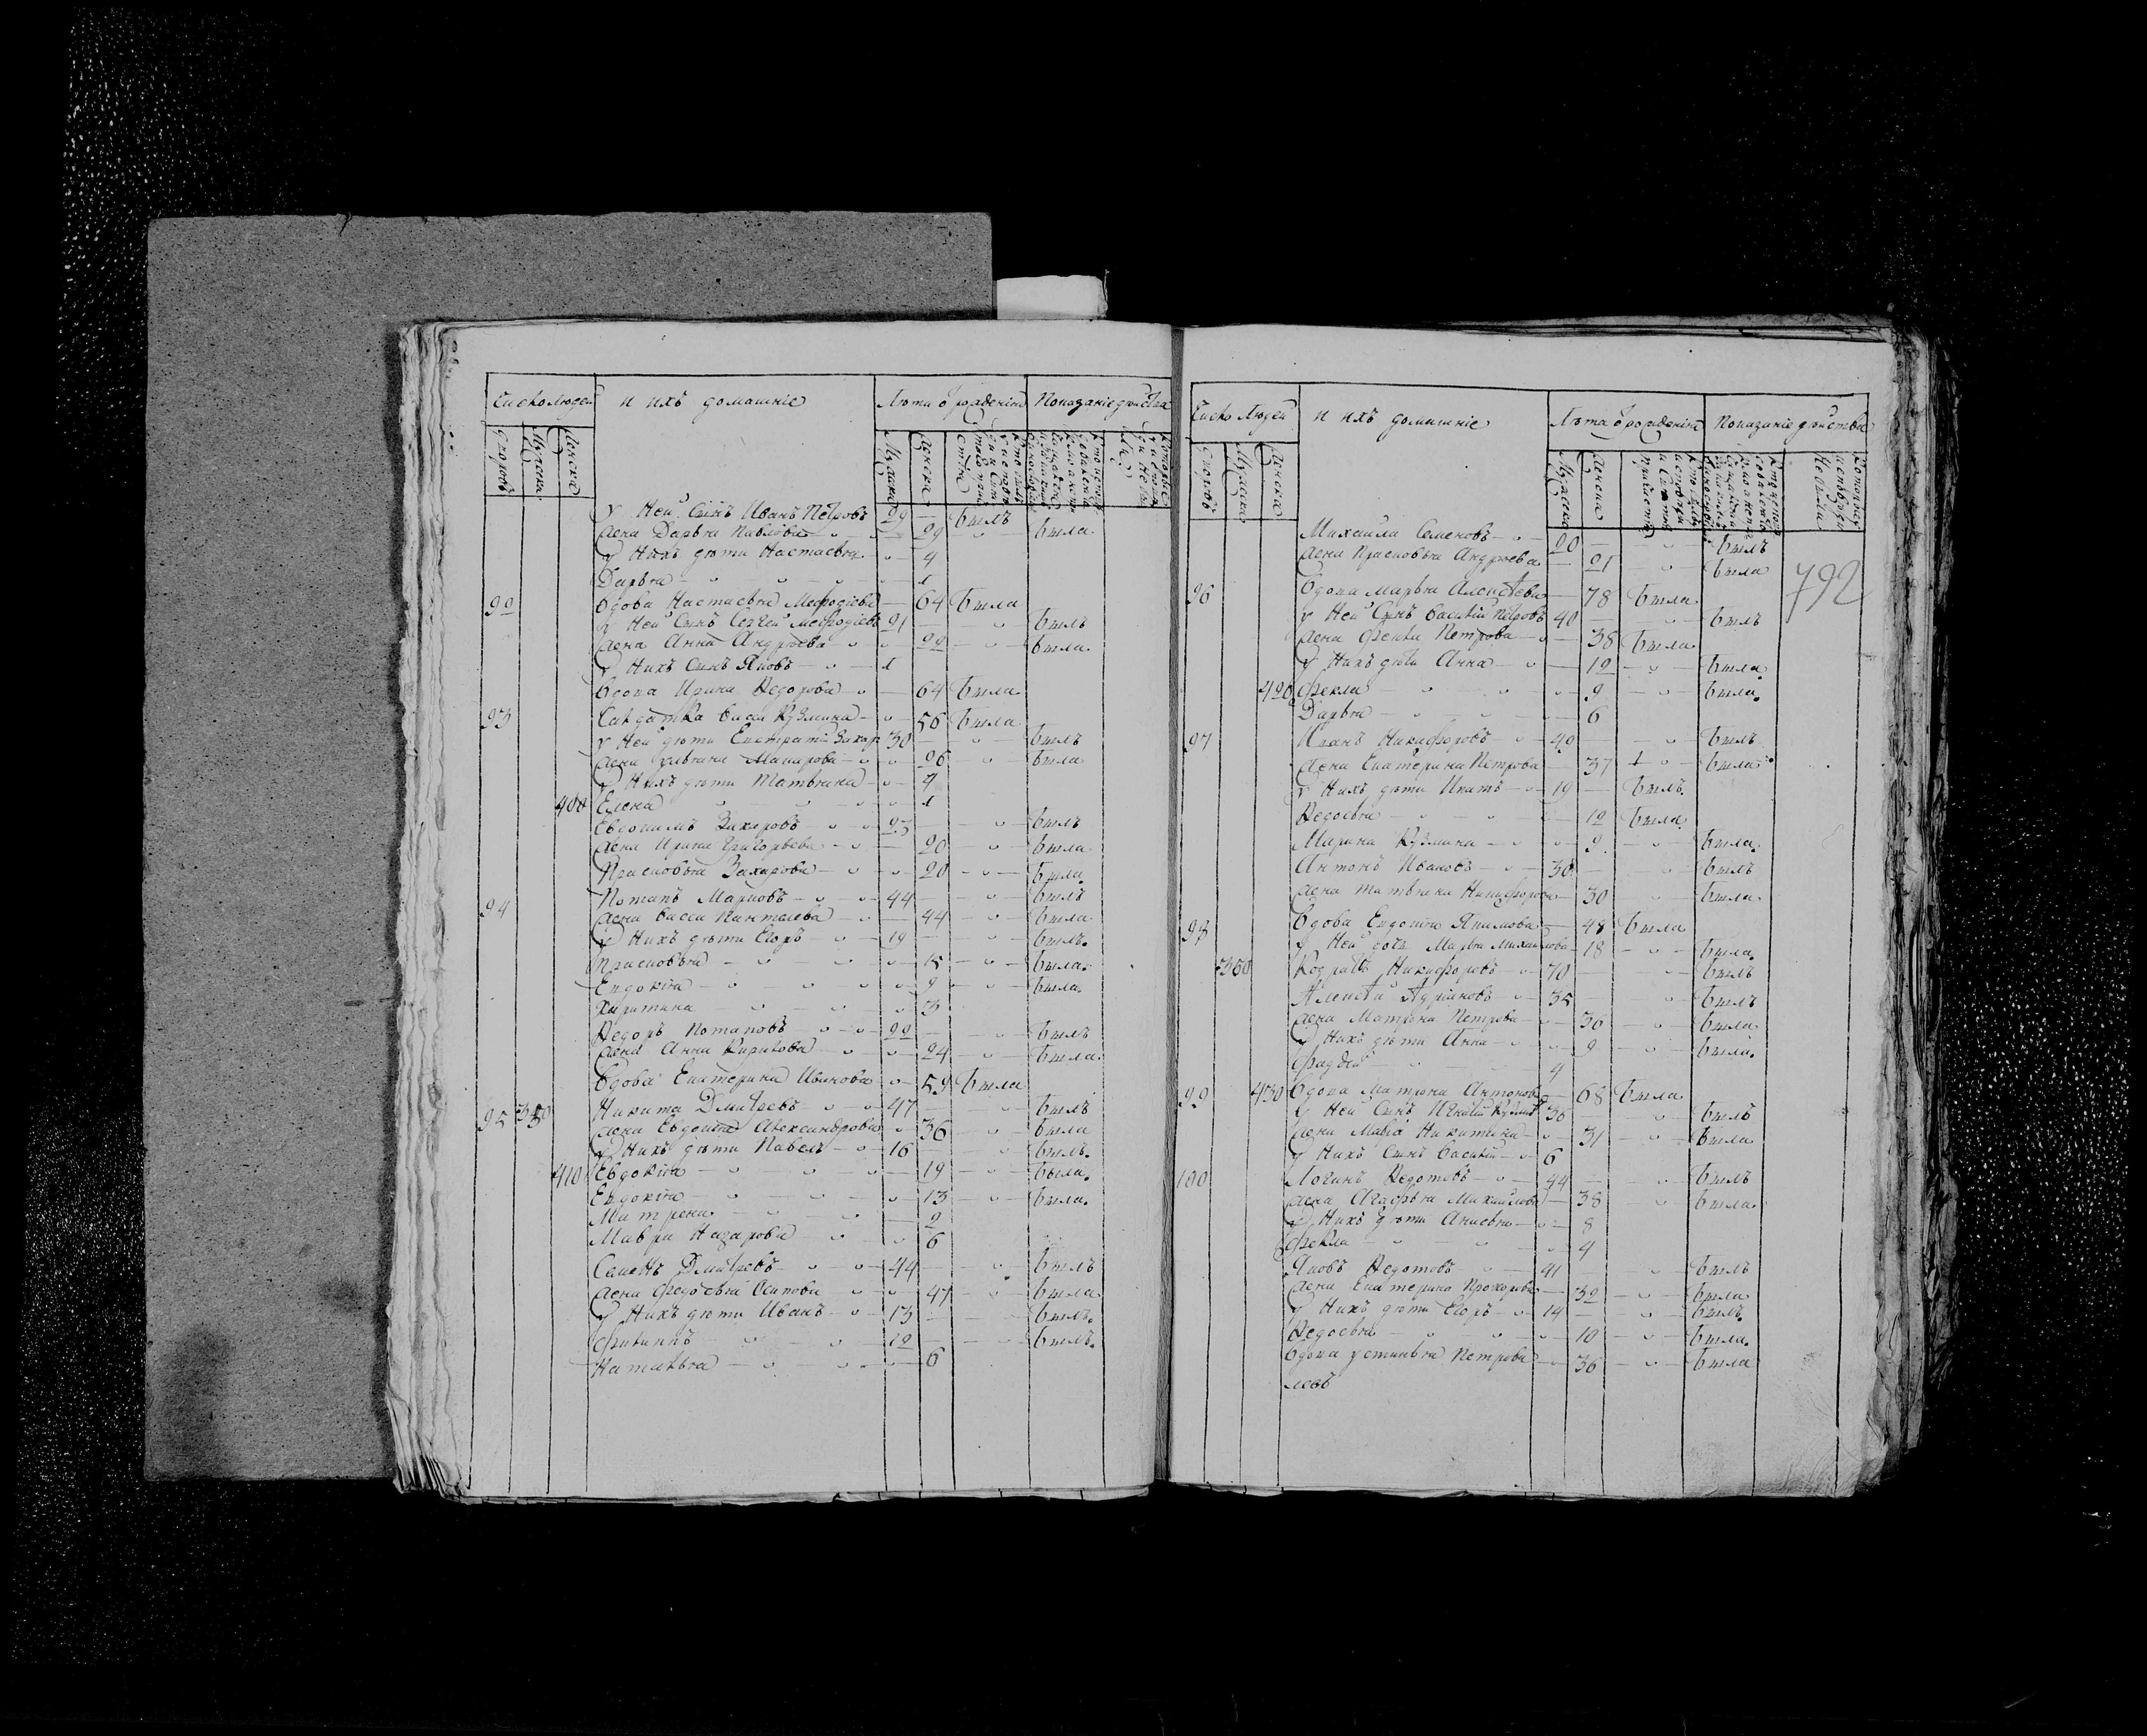 Число людей и ихъ домашние Лѣта ѿ рождения Показание действа
дворовъ мужеска женска мужеска женска
У ней сынъ Иванъ Петровъ 29 былъ
жена Дарья Павлова 29 была
У нихъ дѣти Настасья 4
Дарья 1
92 Вдова Настасья Мефодиева 64 была
У ней сынъ Сергей Мефодиевъ 21 былъ
жена Анна Андреева 22 была
У нихъ сынъ Яковъ 1
Вдова Ирина Ѳедорова 64 была
93 Салдатка Васса Кузмина 56 была
У ней дѣти Евстратий Захар 30 былъ
жена Улияна Макарова 26 была
У нихъ дѣти Татьяна 4
400 Елена 1
Евдокимъ Захаровъ 23 былъ
жена Ирина Григорьева 20 была
Прасковья Захарова 20 была
94 Потапъ Марковъ 44 былъ
жена Васса Пантелева 44 была
У нихъ дѣти Егоръ 19 былъ.
Прасковья 15 была.
Евдокия 9 была.
Харитина 3
Ѳедоръ Потаповъ 22 былъ
жена Анна Кирилова 24 была.
Вдова Екатерина Иванова 59 была
95 350 Никита Дмитревъ 47 былъ
жена Евдокия Александрова 36 была
У нихъ дѣти Павелъ 16 былъ.
410 Евдокия 19 была.
Евдокия 13 была.
Матрена 9
Мавра Назарова 6
Дмитревъ 44 былъ
жена Федосья Осипова 47 была
У нихъ дѣти Иванъ 13 былъ.
Филиппъ 12 былъ.
Наталья 6
Число людей и ихъ домашние Лѣта ѿ рождения Показание действа
дворовъ мужеска женска мужеска женска
Михайла Семеновъ 20 былъ
жена Прасковья Андреева 21 была
792
96 Вдова Марья Алексеева 78 была
У ней сынъ Василий Петровъ 40 былъ
жена Фекла Петрова 38 была
У нихъ дѣти Анна 12 была.
420 Фекла 9 была.
Дарья 6
97 Иванъ Никифоровъ 49 былъ
жена Екатерина Петрова 37 была
У нихъ дѣти Игнатъ 19 былъ.
Ѳедосья 12 была.
Марина Кузмина 9 была.
Антонъ Ивановъ 30 былъ
жена Татьяна Никифорова 30 была
98 Вдова Евдокия Якимова 48 была
У ней дочь Марья Михайлова 18 была.
360 Никифоровъ 70 былъ
Алексей Адрияновъ 35 былъ
жена Матрона Петрова 36 была
У нихъ дѣти Анна 9 была.
Фаддей 4
99 430 Вдова Матрона Антонова 68 была
У ней сынъ Игнатий Кузминъ 36 былъ
жена Мария Никитина 31 была
У нихъ сынъ Василий 6
100 Логинъ Ѳедотовъ 44 былъ
жена Агафья Михайлова 38 была.
У нихъ дѣти Анисья 8
Фекла 4
Яковъ Ѳедотовъ 41 былъ
жена Екатерина Прохорова 32 была
У нихъ дѣти Егоръ 14 былъ.
Ѳедосья 10 была.
Вдова Устинья Петрова 36 была